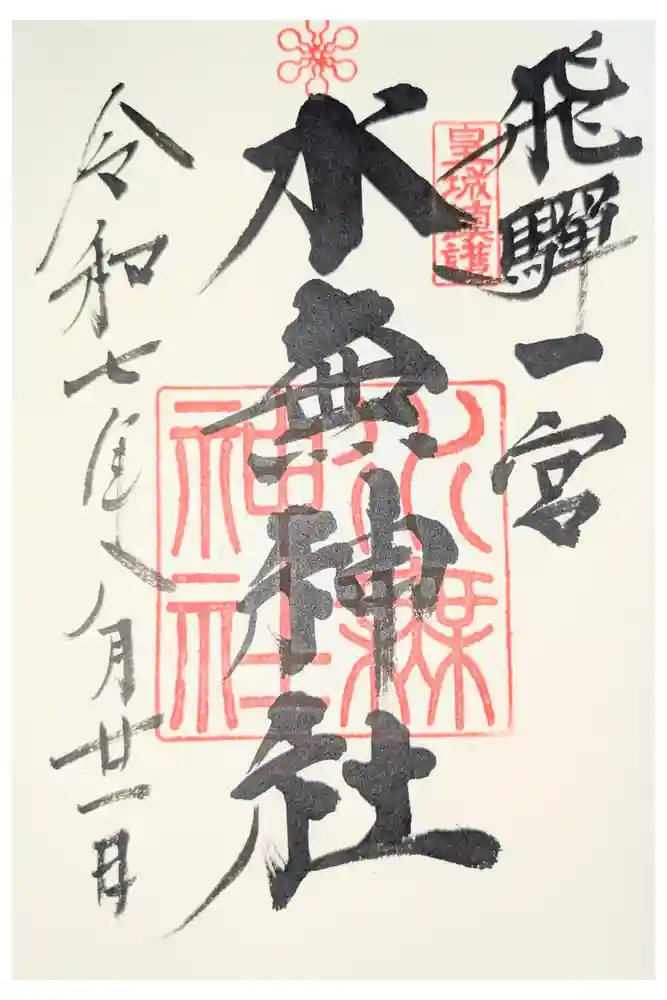 飛騨一宮
皇城鎮護
水無神社
水無
神社
令和七年八月廿一日